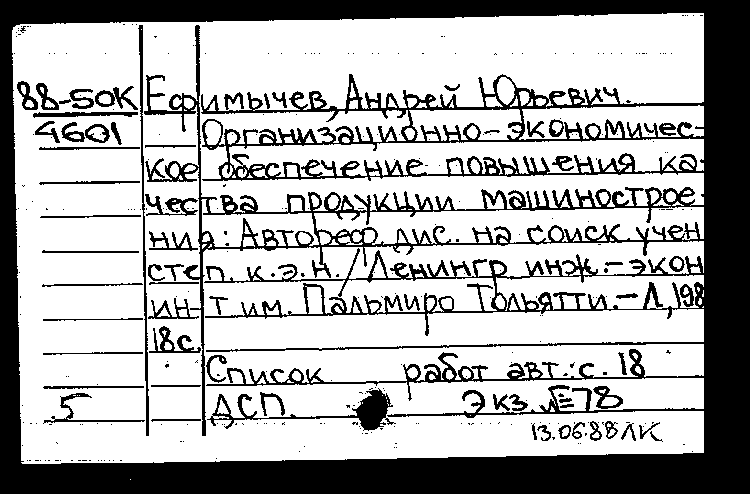 88-50К Ефимычев, Андрей Юрьевич.
4601 Организационно-экономичес-
кое обеспечение повышения ка-
чества продукции машинострое-
ния: Автореф. дис. на соиск. учен
степ. к.э.н. / Ленингр. инж.-экон
ин-т им. Пальмиро Тольятти.-Л, 198
18с.
Список работ авт.: с. 18
5 ДСП. Экз. №78
13.06.88 ЛК